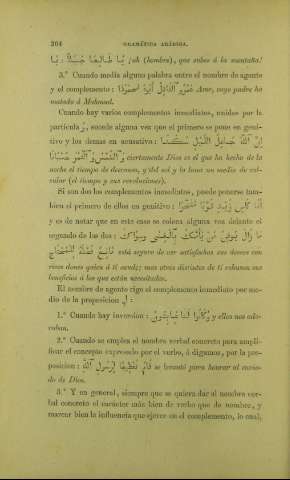 264 GRAMÁTICA ÁRABIGA.
يَا طَالِعًا جَبَلًا ¡oh (hombre), que subes á la montaña!
3.° Cuando media alguna palabra entre el nombre de agente
y el complemento: Amr, cuyo padre ha
matado á Mahmud.
Cuando hay varios complementos inmediatos, unidos por la
partícula وَ, sucede alguna vez que el primero se pone en geni-
tivo y los demas en acusativo: إِنَّ ٱللّٰهَ جَاعِلُ ٱللَّيْلِ سَكَنًا
وَٱلشَّمْسَ وَٱلْقَمَرَ حُسْبَانًا ciertamente Dios es el que ha hecho de la
noche el tiempo de descanso, y del sol y la luna un medio de cál-
culo (el tiempo y sus revoluciones).
Si son dos los complementos inmediatos, puede ponerse tam-
bien el primero de ellos en genitivo:
y es de notar que en este caso se coloca alguna vez delante el
segundo de los dos:
está seguro de ver satisfechos sus deseos con
ricos dones quien á tí acude; mas otros distintos de tí rehusan sus
beneficios á los que están necesitados.
El nombre de agente rige el complemento inmediato por me-
dio de la preposicion لِ:
1.° Cuando hay inversion: وَكَانُوا لَنَا عَابِدِينَ y ellos nos ado-
raban.
2.° Cuando se emplea el nombre verbal concreto para ampli-
ficar el concepto expresado por el verbo, ó digamos, por la pre-
posicion: قَامَ تَعْظِيمًا لِرَسُولِ ٱللّٰهِ se levantó para honrar al envia-
do de Dios.
3.° Y en general, siempre que se quiera dar al nombre ver-
bal concreto el carácter más bien de verbo que de nombre, y
marcar bien la influencia que ejerce en el complemento, lo cual,